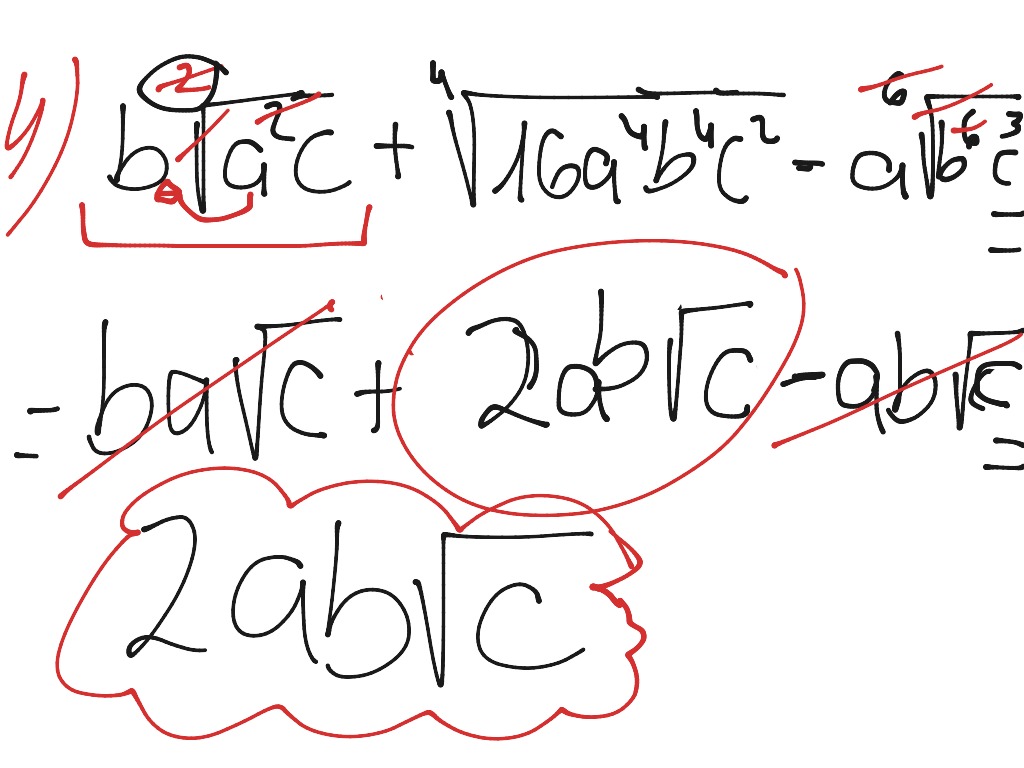 4) b²√a²c + ⁴√16a⁴b⁴c² - a⁶√b⁶c³ =
= ba√c + 2ab√c - ab√c =
2ab√c